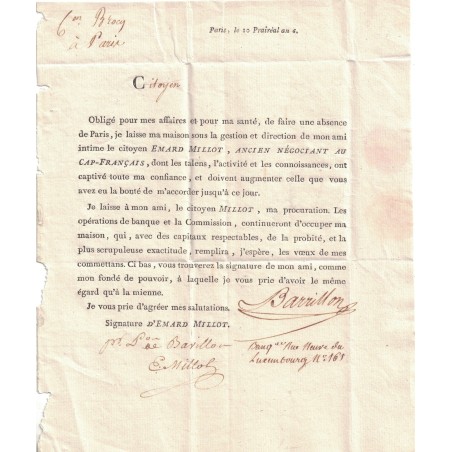 Paris, le 10 Prairéal an 4.
Con Brocq
à Paris
Citoyen
Obligé pour mes affaires et pour ma santé, de faire une absence
de Paris, je laisse ma maison sous la gestion et direction de mon ami
intime le citoyen EMARD MILLOT, ANCIEN NÉGOCIANT AU
CAP-FRANÇAIS, dont les talens, l'activité et les connoissances, ont
captivé toute ma confiance, et doivent augmenter celle que vous
avez eu la bonté de m'accorder jusqu'à ce jour.
Je laisse à mon ami, le citoyen MILLOT, ma procuration. Les
opérations de banque et la Commission, continueront d'occuper ma
maison, qui, avec des capitaux respectables, de la probité, et la
plus scrupuleuse exactitude, remplira, j'espère, les vœux de mes
commettans. Ci bas, vous trouverez la signature de mon ami, comme
mon fondé de pouvoir, à laquelle je vous prie d'avoir le même
égard qu'à la mienne.
Je vous prie d'agréer mes salutations.
Barrillon
Signature D'EMARD MILLOT.
pr Pon de Barillon
E. Millot
Banq. Rue Neuve du
Luxembourg No. 161